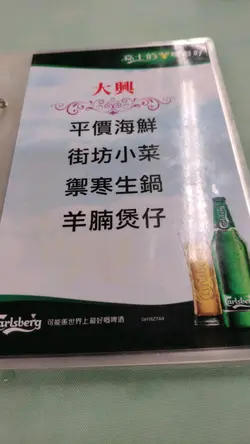 大興
平價海鮮
街坊小菜
禦寒生鍋
羊腩煲仔
Carlsberg
arlsberg
可能係世界上最好嘅啤酒